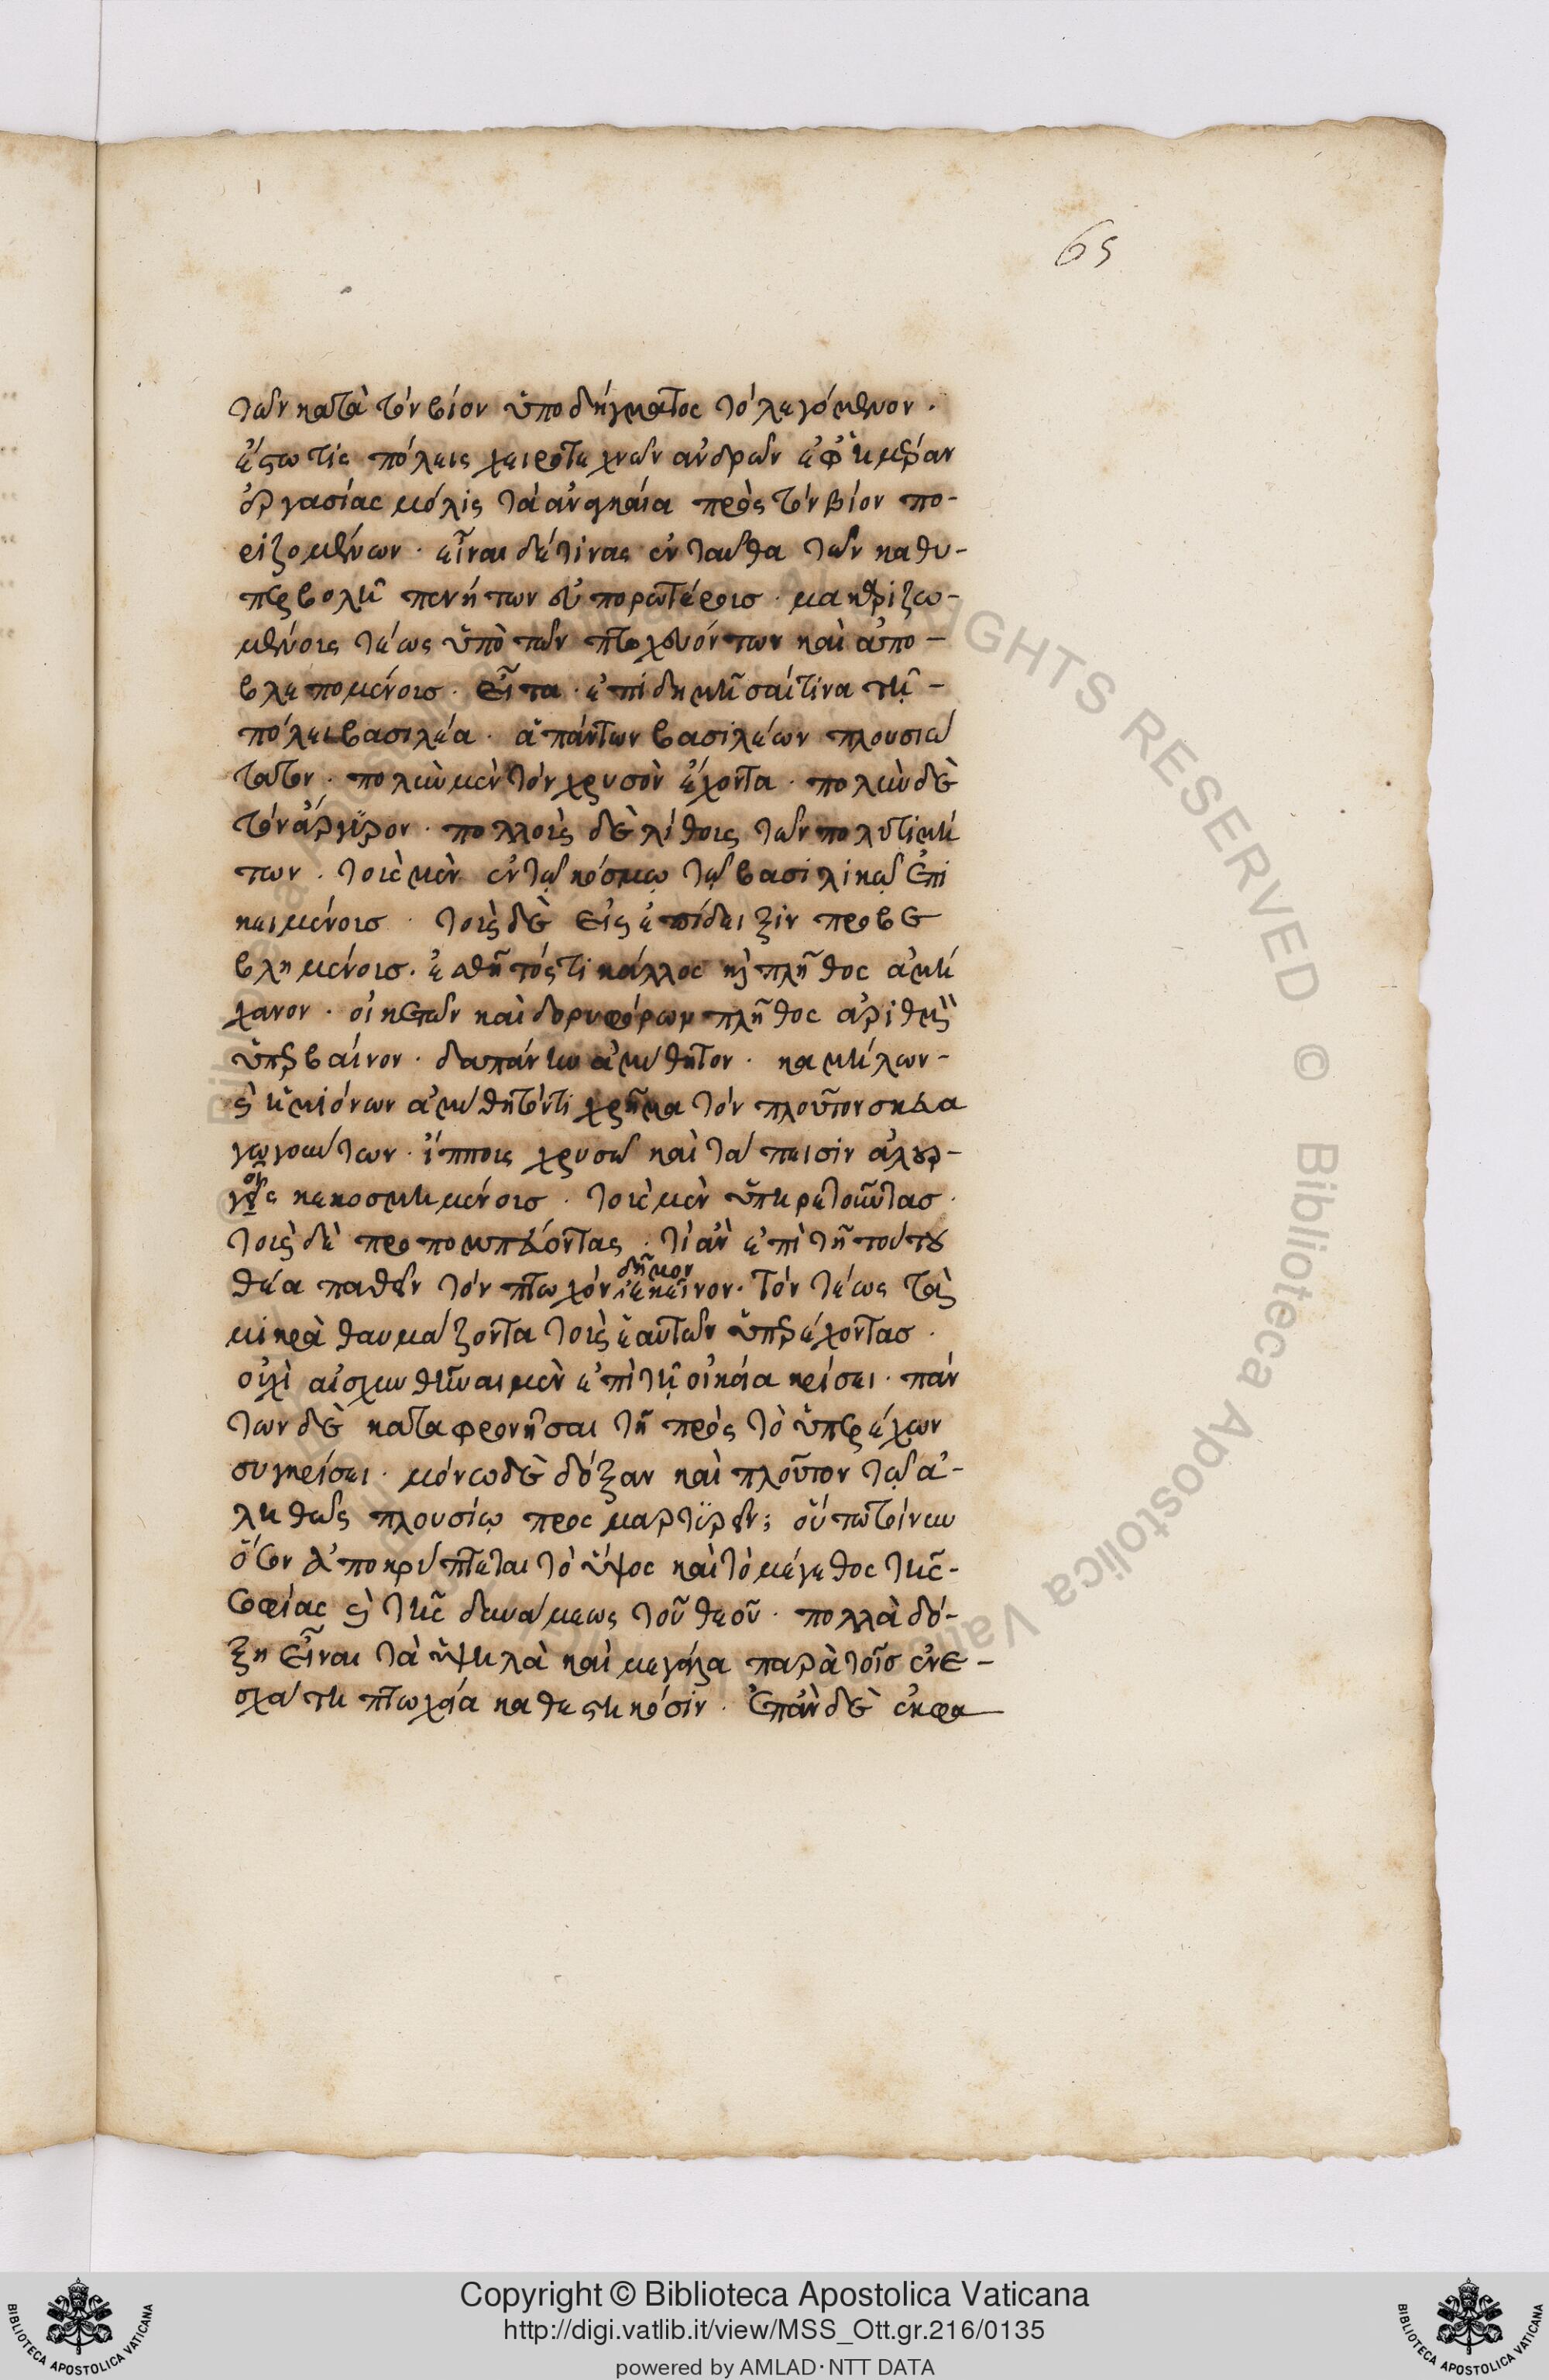 65
τῶν κατὰ τὸν βίον ὑποδήγματος τὸ λεγόμενον ·
ἔστω τίς πόλεις χειροτεχνῶν ἀνδρῶν ἐφ' ἡμέραν
ἐργασίας μόλις τὰ ἀναγκαία πρὸς τὸν βίον πο-
ριζομένων · εἶναι δέ τινας ἐνταῦθα τῶν καθυ-
περβολὴ πενήτων εὐπορωτέροις · μακαριζω-
μένοις τέως ὑπὸ τῶν πτωχευόντων καὶ ἀπο-
βλεπομένοις · εἶτα · ἐπιδημῆσαί τινα τῇ -
πόλει βασιλέα · ἁπάντων βασιλέων πλουσιώ
τατον · πολὺν μὲν τὸν χρυσὸν ἔχοντα · πολὺν δὲ
τὸν ἄργυρον · πολλοὶς δὲ λίθοις τῶν πολυτιμή
των · τοὶς μὲν ἐν τῷ κόσμῳ τῷ βασιλικῷ ἐπι
κειμένοις · τοὶς δὲ εἰς ἐπίδειξιν προβε
βλημένοις · ἐσθῆτός τι κάλλος καὶ πλῆθος ἀμή
χανον · οἰκετῶν καὶ δορυφόρων πλῆθος ἀριθμὸν
ὑπερβαίνον · δαπάνην ἀμύθητον · καμήλων -
καὶ ἡμιόνων ἀμύθητόν τι χρῆμα τὸν πλοῦτον σκευα
γωγούντων · ἵπποις χρυσῶ καὶ τάπεισιν ἁλουρ-
γοῖς κεκοσμημένοις · τοὶς μὲν ὑπηρετοῦντας ·
τοὶς δὲ προπομπεύοντας · τί ἂν ἐπὶ τῆ τούτου
δῆμον
θέα παθεῖν τὸν πτωχὸν ἐκεῖνον · τὸν τέως τὰς
μικρὰ θαυμάζοντα τοὶς ἑαυτῶν ὑπερέχοντας ·
οὐχὶ αἰσχυνθῆναι μὲν ἐπὶ τῇ οἰκεία κρίσει · πάν
των δὲ καταφρονῆσαι τῆ πρὸς τὸ ὑπερέχων
συγκρίσει · μόνω δὲ δόξαν καὶ πλοῦτον τῷ ἀ-
ληθῶς πλουσίῳ προς μαρτυρεῖν; οὕτω τοίνυν
ὅσον ἀποκρύπτεται τὸ ὕψος καὶ τὸ μέγεθος τῆς -
σοφίας καὶ τῆς δυνάμεως τοῦ θεοῦ · πολλὰ δό-
ξη εἶναι τὰ ὑψηλὰ καὶ μεγάλα παρὰ τοῖς ἐν ἐ-
σχάτη πτωχεία καθεστηκόσιν · ἐπὰν δὲ ἐκφα
Copyright © Biblioteca Apostolica Vaticana
http://digi.vatlib.it/view/MSS_Ott.gr.216/0135
powered by AMLAD·NTT DATA